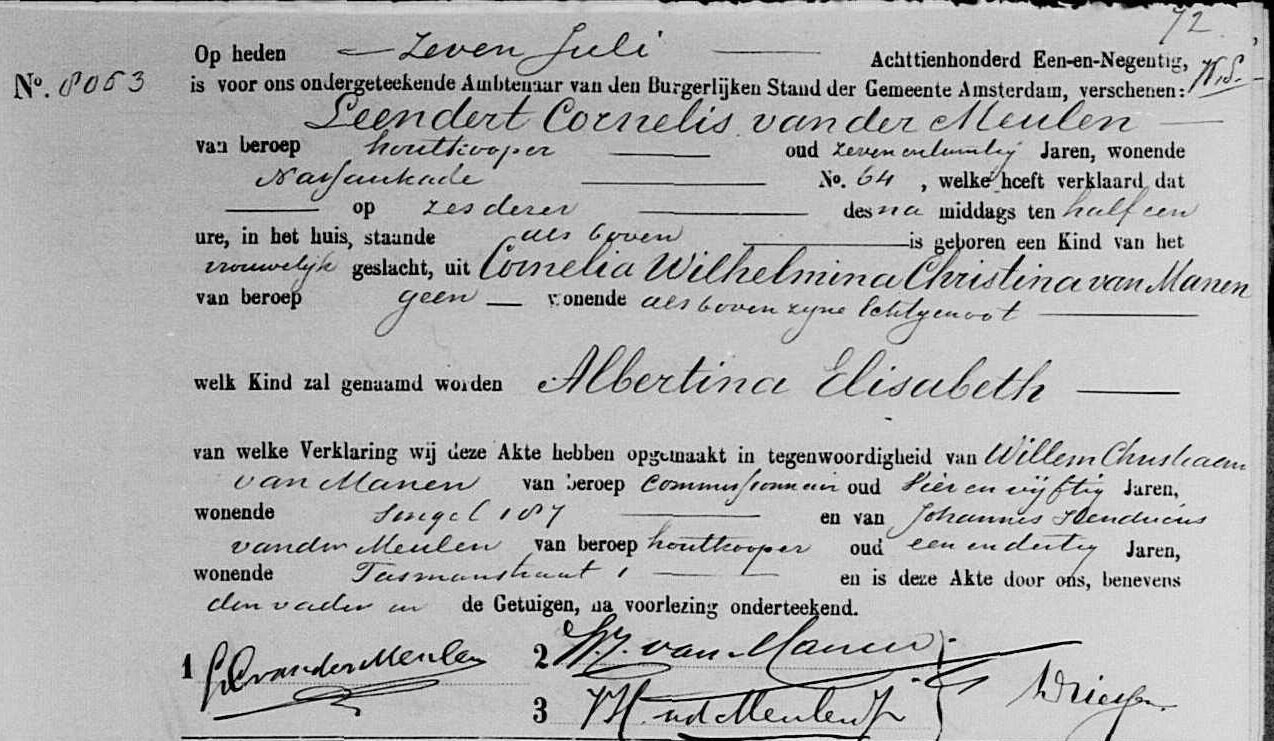 72
Op heden zeven Juli Achttienhonderd Een-en-Negentig,
No. 8053 is voor ons ondergeteekende Ambtenaar van den Burgerlijken Stand der Gemeente Amsterdam, verschenen:
Leendert Cornelis van der Meulen
van beroep houtkooper oud zevenentwintig Jaren, wonende
Nassaukade No. 64, welke heeft verklaard dat
op zes dezer des na middags ten half een
ure, in het huis, staande als boven is geboren een Kind van het
vrouwelijk geslacht, uit Cornelia Wilhelmina Christina van Manen
van beroep geen wonende als boven zijne Echtgenoot
welk Kind zal genaamd worden Albertina Elisabeth
van welke Verklaring wij deze Akte hebben opgemaakt in tegenwoordigheid van Willem Christiaan
van Manen van beroep commissionnair oud vier en vijftig Jaren,
wonende Singel 187 en van Johannes Hendricus
van der Meulen van beroep houtkooper oud een en dertig Jaren,
wonende Tasmanstraat 1 en is deze Akte door ons, benevens
den vader en de Getuigen, na voorlezing onderteekend.
1 LC van der Meulen 2 van Manen
3 JH. v d Meulen Jr